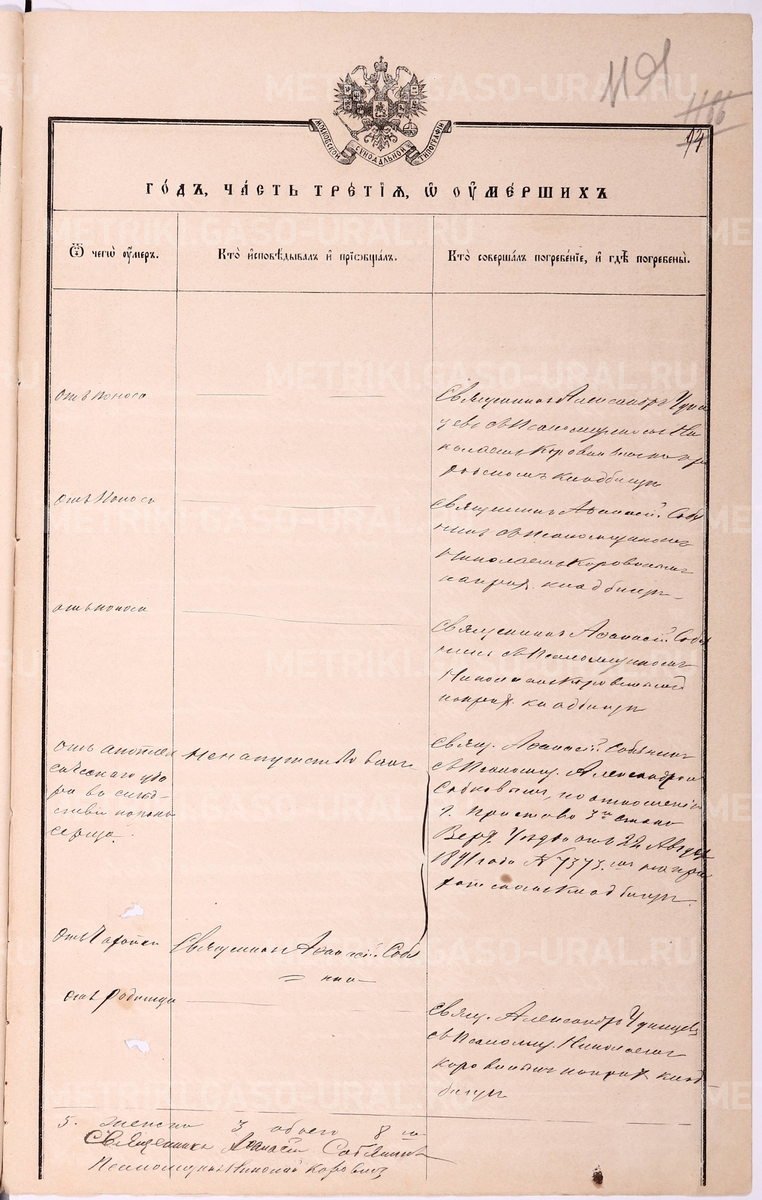 119
1166
14
МОСКОВСКОЙ СѴНОДАЛЬНОЙ ТИПОГРАФІИ
ГОДЪ, ЧАСТЬ ТРЕТІЯ, Ѡ ОУМЕРШИХЪ
Ѿ чегѡ оумеръ.
Кто исповѣдывалъ и пріобщалъ.
Кто совершалъ погребеніе, и гдѣ погребены.
отъ поноса
Священникъ Александръ Удин
цевъ съ Псаломщикомъ Ни
колаемъ Коровинымъ на при
ходскомъ кладбищѣ
отъ поноса
Священникъ Аѳанасій Собя
нинъ съ Псаломщикомъ
Николаемъ Коровинымъ
на прих. кладбищѣ.
отъ поноса
Священникъ Аѳанасій Собя
нинъ съ Псаломщикомъ
Николаемъ Коровинымъ
на прих. кладбищѣ
отъ апоплек
сическаго уда
ра во слѣд
ствіи
сердца.
не напутствованъ
Свящ. Аѳанасій Собянинъ
съ Псаломщ. Александромъ
по отношенію
г. Пристава 3го стана
Верх. Уѣзда отъ 22 Августа
1891 года № 7373. на при
ходскомъ кладбищѣ.
отъ
Священникъ Аѳанасій Собя
нинъ
отъ родимца
Свящ. Александръ Удинцевъ
съ Псаломщ. Николаемъ
Коровинымъ на прих. клад
бищѣ
5. женска 3 обоего 8
Священникъ Аѳанасій Собянинъ
Псаломщикъ Николай Коровинъ
METRIKI.GASO-URAL.RU